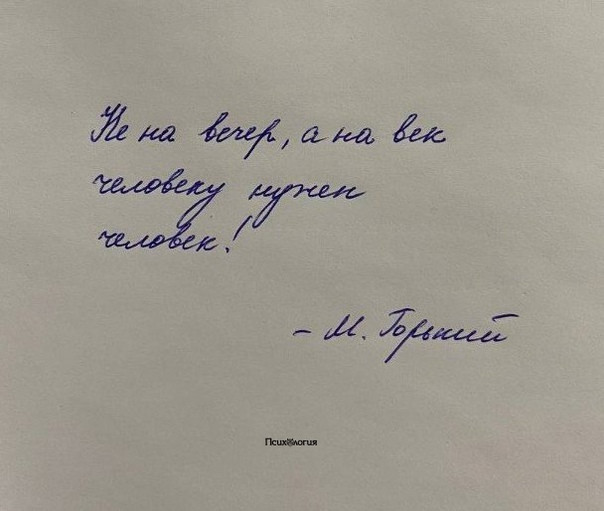 Не на вечер, а на век
человеку нужен
человек!
- М. Горький
Психология